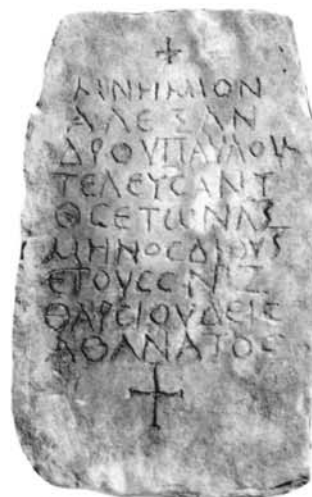 +
ΜΝΗΜΙΟΝ
ΑΛΕΞΑΝ
ΔΡΟΥΠΑΥΛΟΥ
ΤΕΛΕΥCΑΝΤ
ΟCΕΤΩΝΛϚ
ΜΗΝΟCΔΙΟΥϚ
ΕΤΟΥC
ΘΑΡCΙΟΥΔΕΙC
ΑΘΑΝΑΤΟC
+